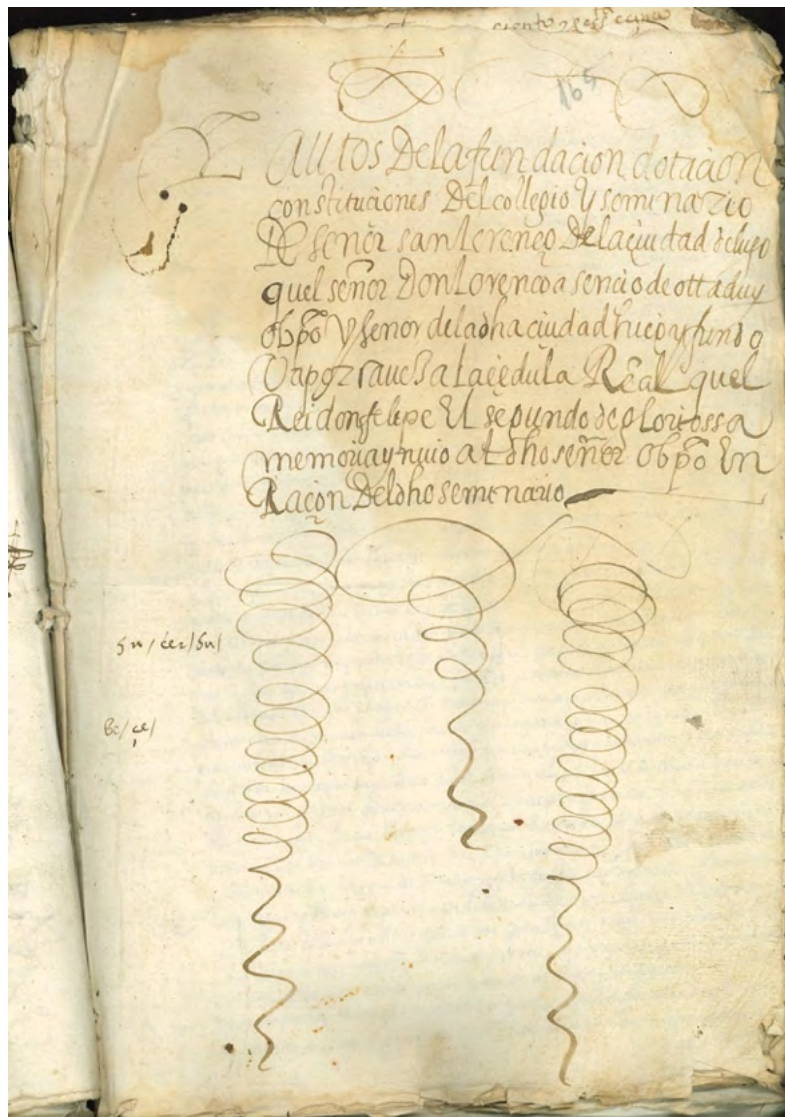 ciento y sesª e cinco
165
Autos De la fundacion dotacion
constituciones Del collegio y seminario
De señor san lorenço De la ciudad de lugo
quel señor Don lorenco asencio de ottaduy
obpo y señor de la dha ciudad hiço y fundo
Va por caveSa la cedula Real quel
Rei don felepe El segundo de gloriossa
memoria ynuio al dho señor obpo En
Raçon Del dho seminario